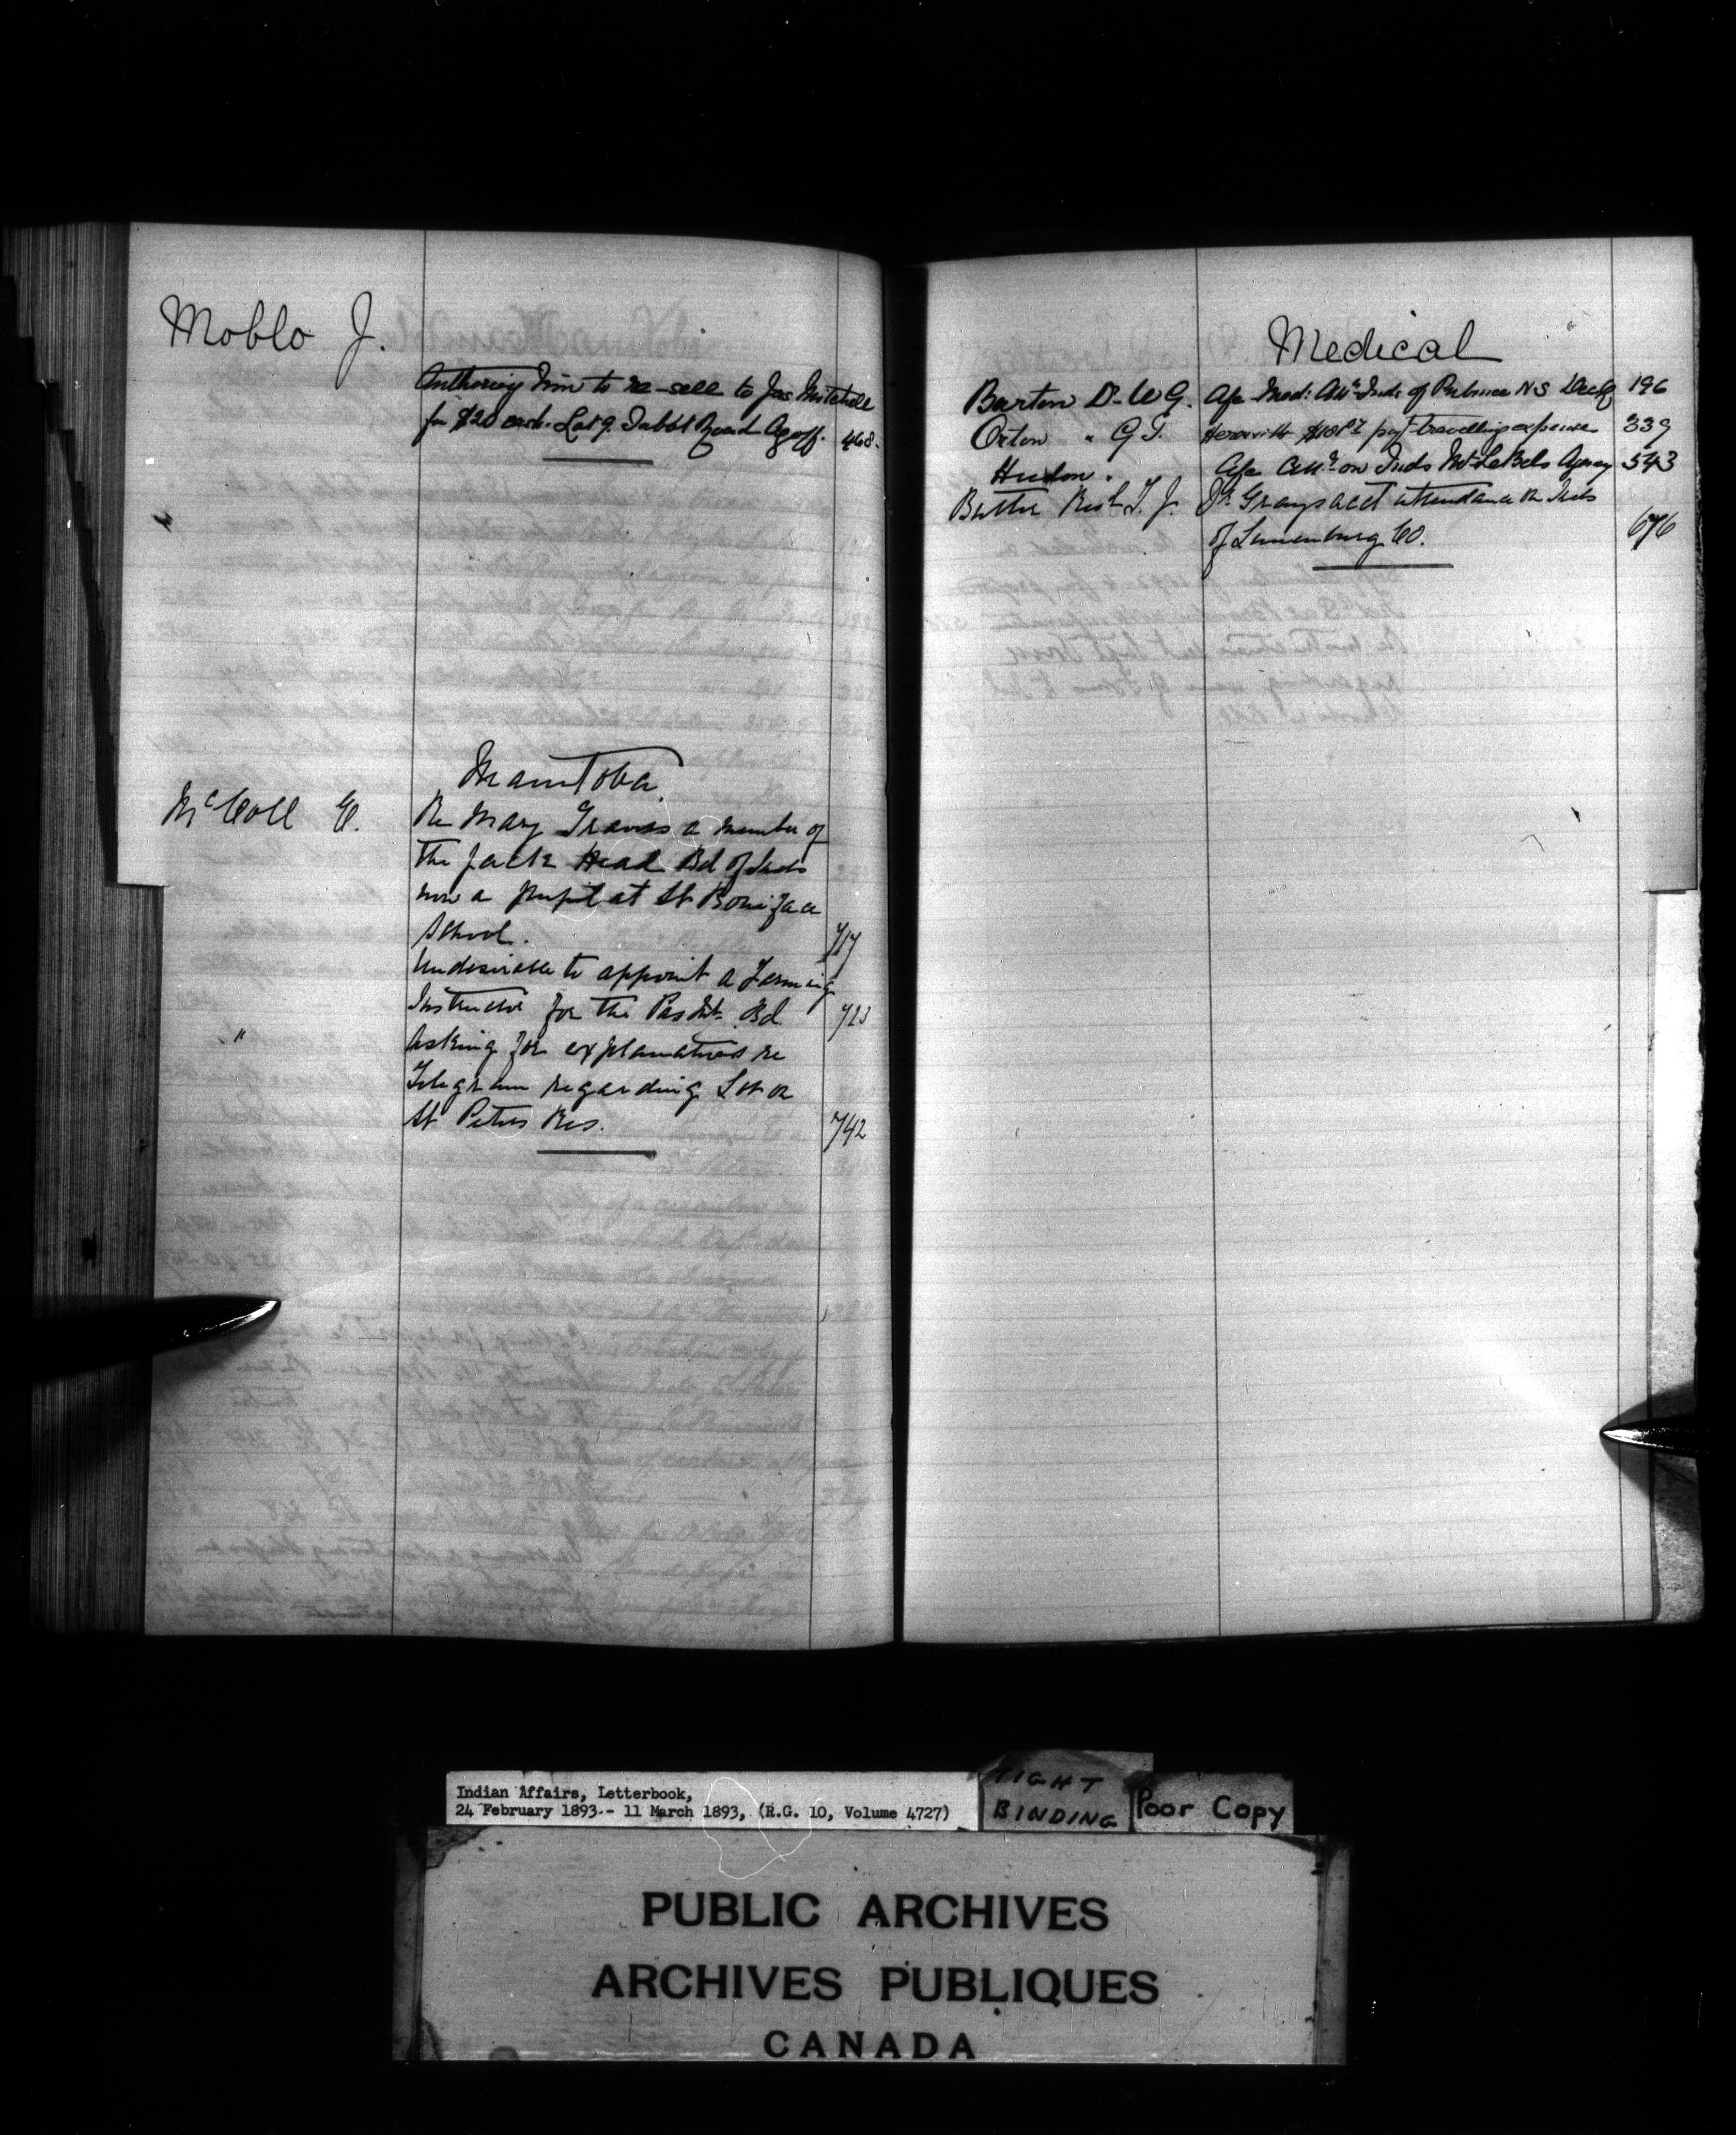 Moblo J.
Authorizing him to re-sell to Jas Mitchell
for $20 cash. Lot 9. Talbot Road 468.
Manitoba.
McColl E.
Re Mary Graves a member of
the Jack Head Bd of Inds
now a pupil at St Boniface
School. 717
Undesirable to appoint a Farming
Instructor for the Pas Bd. 723
" Asking for explanations re
Telegram regarding Lot on
St Peters Res. 742
Medical
Burton Dr W G. a/c Med: Inds of N S 196
Orton " G T. Herewith travelling expenses 339
Hudon. a/c on Inds LeBels Agency 543
Butler Rev T. J. Dr Grays acct attendance on Inds
of Lunenburg Co. 676
Indian Affairs, Letterbook,
24 February 1893 - 11 March 1893, (R.G. 10, Volume 4727)
TIGHT
BINDING
Poor Copy
PUBLIC ARCHIVES
ARCHIVES PUBLIQUES
CANADA